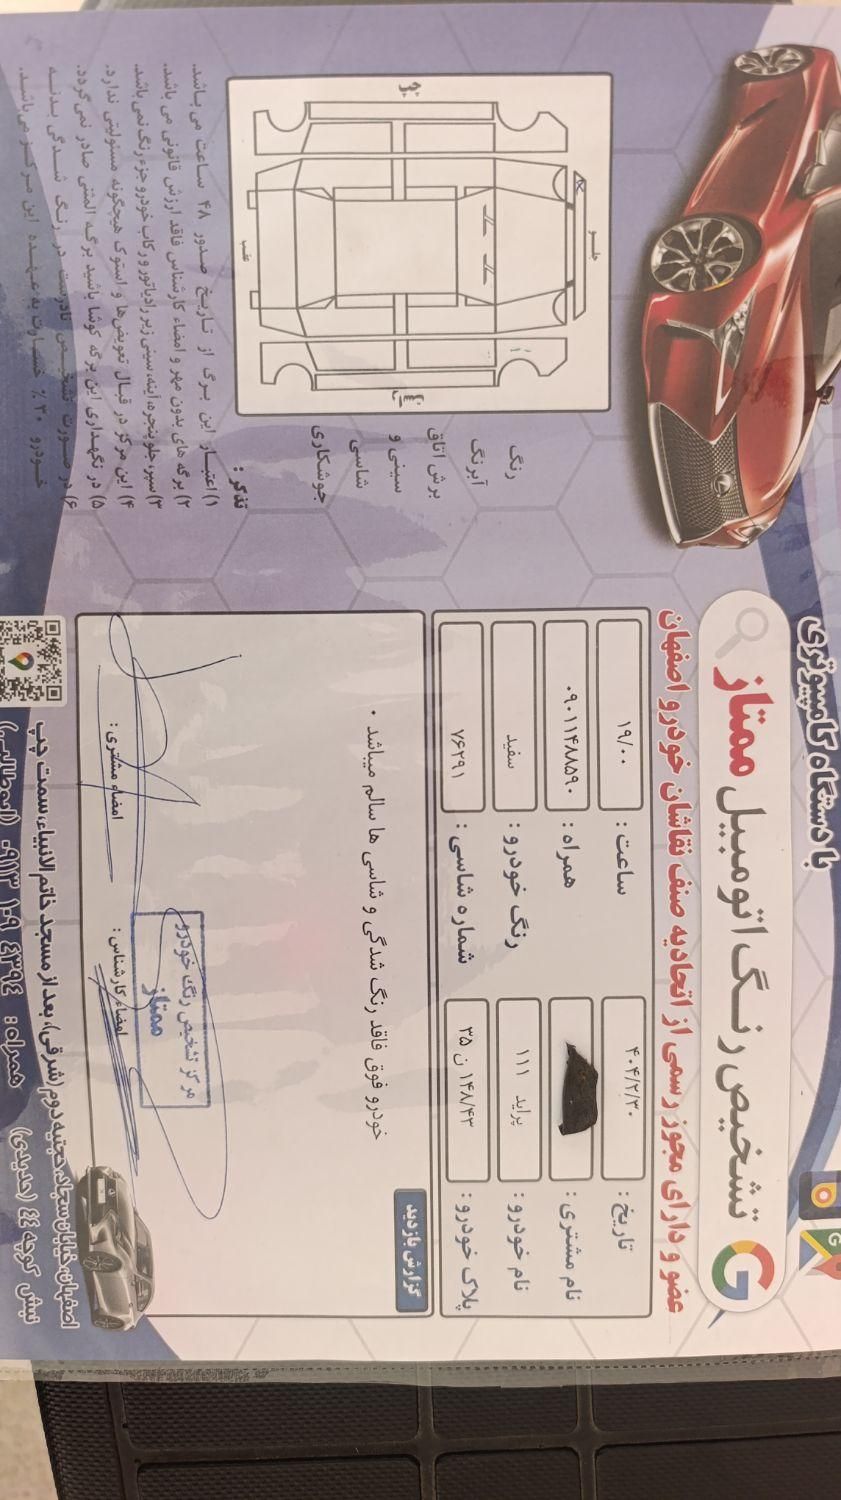 با دستگاه کامپیوتری
تشخیص رنگ اتومبیل ممتاز
عضو و دارای مجوز رسمی از اتحادیه صنف نقاشان خودرو اصفهان
تاریخ : ۴۰۴/۲/۳۰
ساعت : ۱۹/۰۰
نام مشتری :
همراه : ۰۹۰۱۱۴۸۸۵۹۰
نام خودرو : پراید ۱۱۱
رنگ خودرو : سفید
پلاک خودرو : ۱۴۸/۴۳ ن ۳۵
شماره شاسی : ۷۶۲۹۱
گزارش بازدید
خودرو فوق فاقد رنگ شدگی و شاسی ها سالم میباشد .
مرکز تشخیص رنگ خودرو
ممتاز
امضاء کارشناس :
امضاء مشتری :
جلو
عقب
رنگ
آبرنگ
برش اتاق
سینی و
شاسی
جوشکاری
تذکر :
۱) اعتبار این برگ از تاریخ صدور ۴۸ ساعت می باشد.
۲) برگه های بدون مهر و امضاء کارشناس فاقد ارزش قانونی می باشد.
۳) سپر، جلوپنجره، آینه، سینی زیر رادیاتور و رکاب خودرو جزء رنگ نمی باشد.
۴) این مرکز در قبال تعویض ها و استوک هیچگونه مسئولیتی ندارد.
۵) در نگهداری این برگه کوشا باشید برگه المثنی صادر نمی گردد.
۶) در صورت تشخیص نادرست در رنگ شدگی بدنه
خودرو ۳۰٪ خسارت به عهده این مرکز می باشد.
اصفهان، خیابان سجاد، حجتیه دوم (شرقی)، بعد از مسجد خاتم الانبیاء، سمت چپ
نبش کوچه ٤٤ (حدیدی) همراه : ٤٣٩٤ ١٠٩ ٠٩١٣ (ابوطالبی)